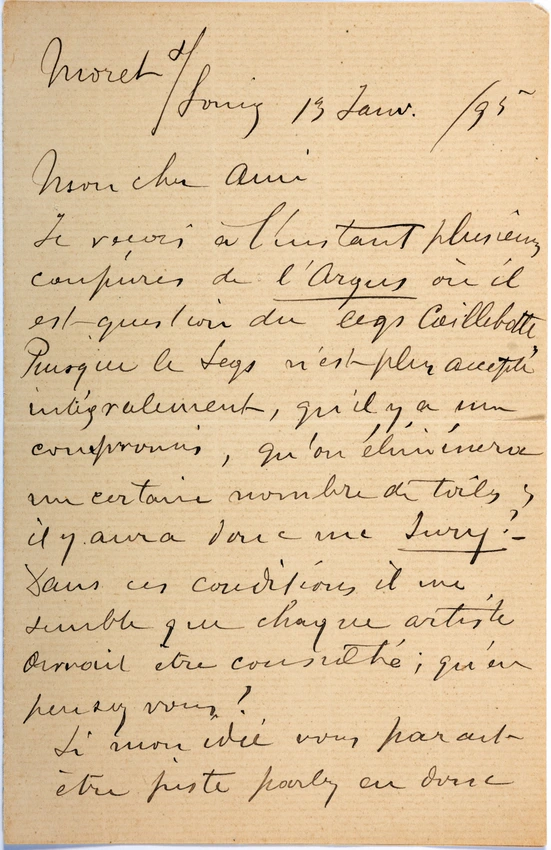 Moret s/
Loing 13 Janv. /95
Mon cher Ami
Je reçois à l'instant plusieurs
coupures de l'Argus où il
est question du legs Caillebotte
Puisque le legs n'est plus accepté
intégralement, qu'il y a un
compromis, qu'on éliminera
un certain nombre de toiles ;
il y aura donc un Jury ? –
Dans ces conditions il me
semble que chaque artiste
devrait être consulté ; qu'en
pensez vous ?
Si mon idée vous parait
être juste parlez en donc